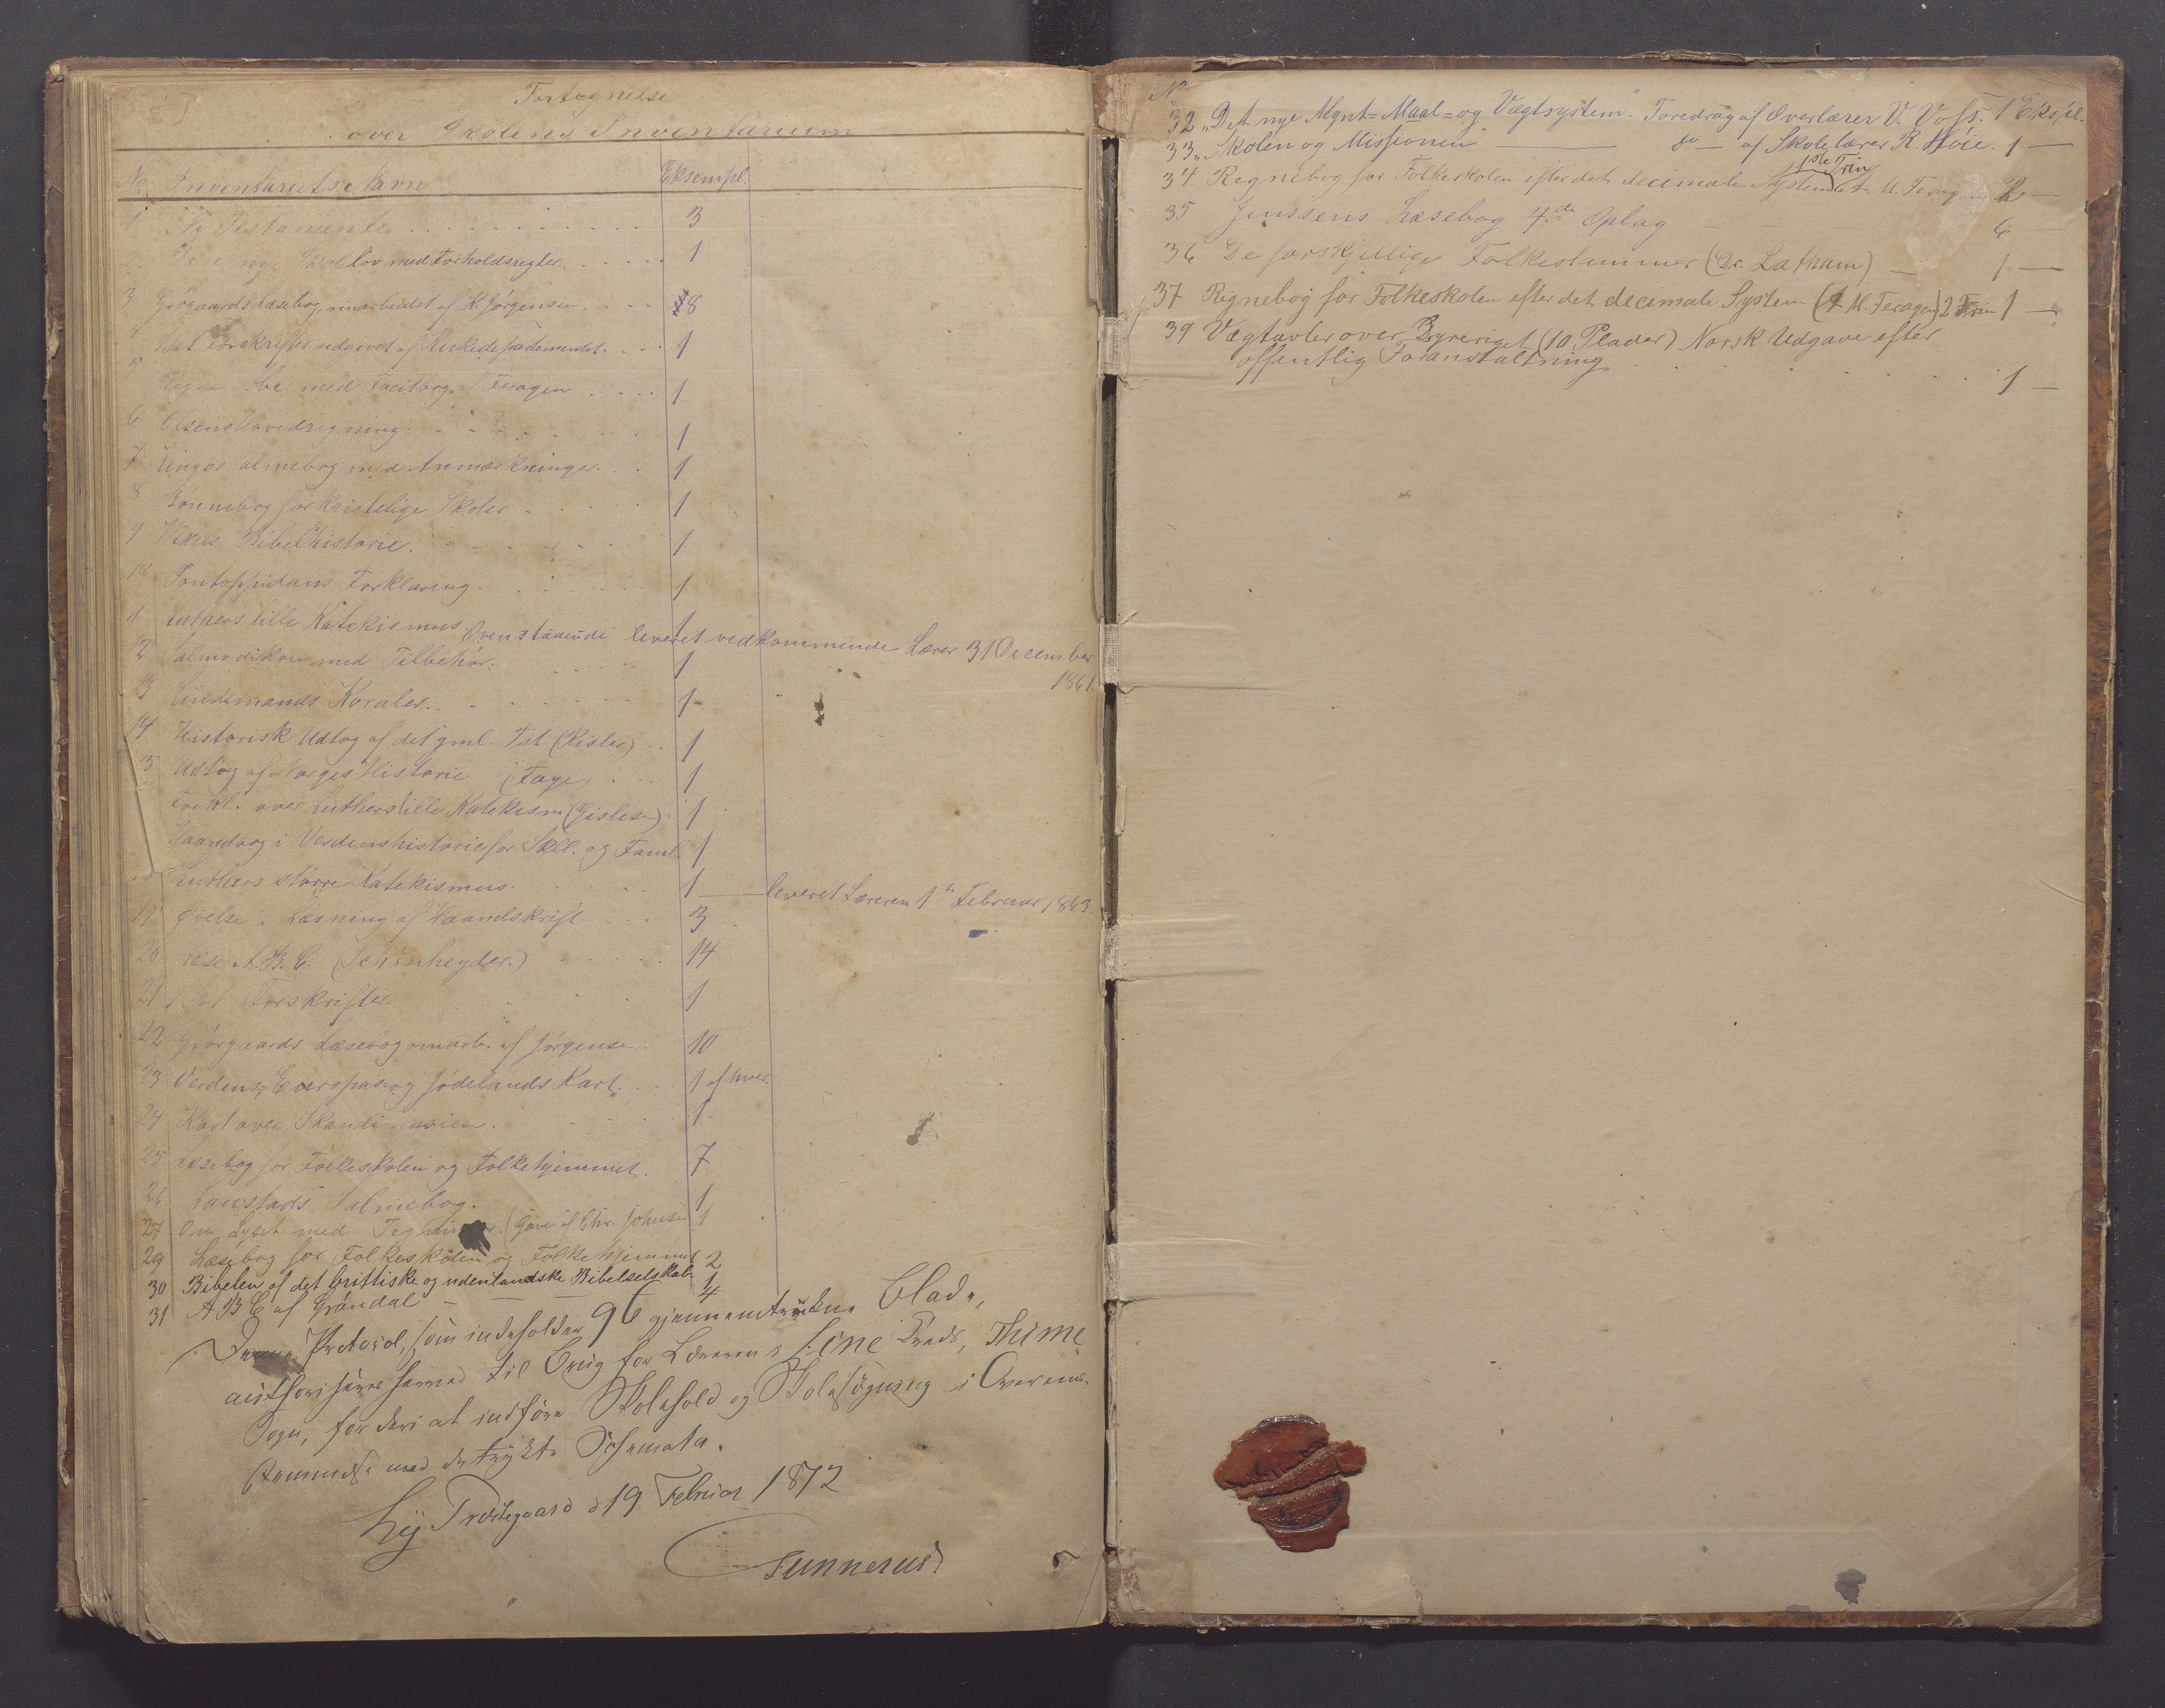 Fortegnelse
over Skolens Inventarium
No. Inventariets Navn Eksempl.
1 Ny Testamente 3
2 Den nye Skollov med Forholdsregler 1
3 Grøgaards Læsebog, omarbeidet af K. Jørgensen 8
4 Forskrifter udgivet af Kirkedepartementet 1
5 Regne Abc med Facitbog af Feragen 1
6 Olsens Hovedregning 1
7 Kingos Salmebog med Anmærkninger 1
8 Bønnebog for Kristelige Skoler 1
9 Wexels Bibelhistorie. 1
10 Pontoppidans Forklaring. 1
11 Luthers lille Katekismus. 1 Ovenstaaende leveret vedkommende Lærer 31 December
1861.
12 Salmodikon med Tilbehør. 1
13 Lindemands Koraler. 1
14 Historisk Udtog af det gml. Tst. (Kisler) 1
15 Udtog af Norges Historie (Faye) 1
Forkl. over Luthers lille Katekism (Gislesen) 1
Haandbog i Verdenshistorie for Skll. og Faml. 1
Luthers større Katekismus. 1 leveret Læreren 1ste Februar 1863.
19 Øvelse i Læsning af Haandskrift 3
20 Læse A.B.C. (Schønheyder.) 14
21 Forskrifter. 1
22 Grøgaards Læsebog omarb. af Jørgensen. 10
23 Verdens-, Europas- og Jødelands Kart. 1 af hver.
24 Kart over Skandinavien. 1
25 Læsebog for Folkeskolen og Folkehjemmet. 7
26 Landstads Salmebog. 1
27 Om Lyset med Tegninger. (Gave af Chr. Johnsen 1
29 Læsebog for Folkeskolen og Folkehjemmet 2
30 Bibelen af det brittiske og udenlandske Bibelselskab 1
31 A B C af Grøndal 4
Denne Protocol, som indeholder 96 gjennemtrukne Blade,
authoriseres herved til Brug for Læreren i Line Kreds, Thime
Sogn, for deri at indføre Skolehold og Skolesøgning i Overens-
stemmelse med de trykte Schemata.
Lye Præstegaard d 19 Februar 1872
Gunnerus
No
32 „Det nye Mynt= Maal= og Vægtsystem". Foredrag af Overlærer V. Voss. 1 Ekspl.
33 „Skolen og Missionen" — do — af Skolelærer R. Høie. 1 —
34 Regnebog for Folkeskolen efter det decimale System 1ste Trin M. Feragen 2 —
35 Jenssens Læsebog 4de Oplag 6 —
36 De forskjellige Folkestammer (Dr. Latham) — 1 —
37 Regnebog for Folkeskolen efter det decimale System (A. M. Feragen) 2 Trin 1 —
39 Vægtavler over Dyreriget (10 Plader) Norsk Udgave efter
offentlig Foranstaltning 1 —